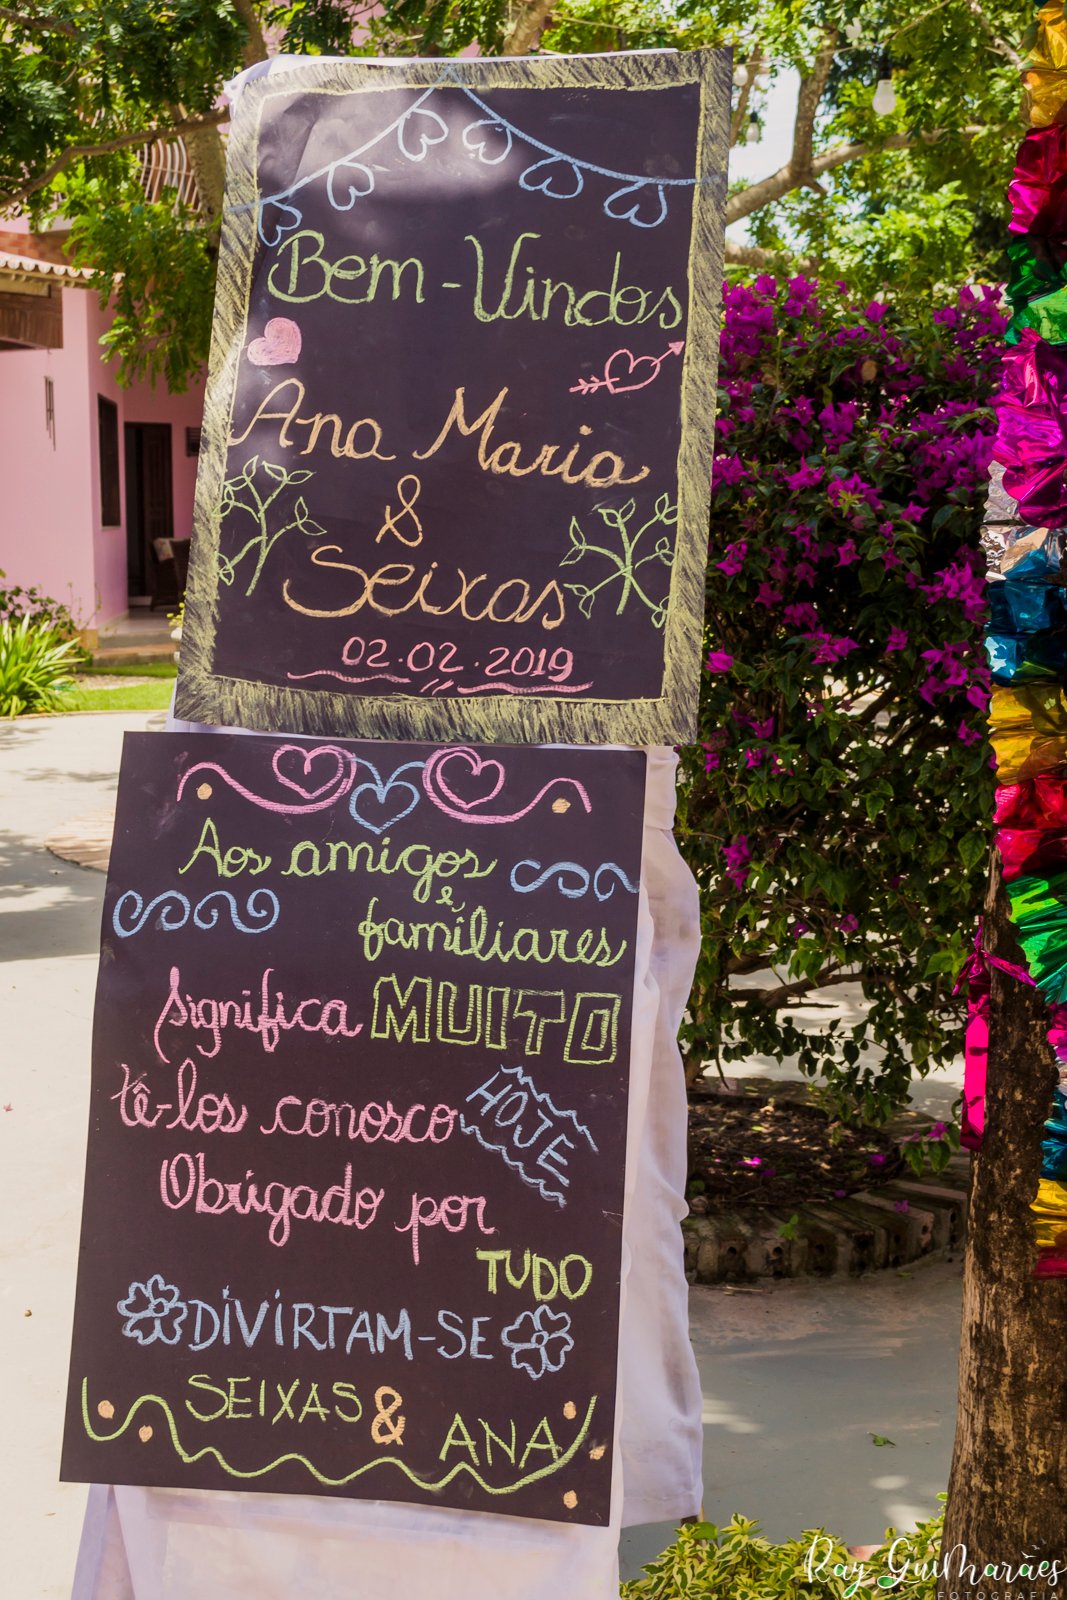 Bem-Vindos
Ana Maria
&
Seixas
02.02.2019
Aos amigos
e
famíliares
significa MUITO
tê-los conosco HOJE
Obrigado por
TUDO
DIVIRTAM-SE
SEIXAS & ANA
Ray Guilharães
FOTOGRAFIA